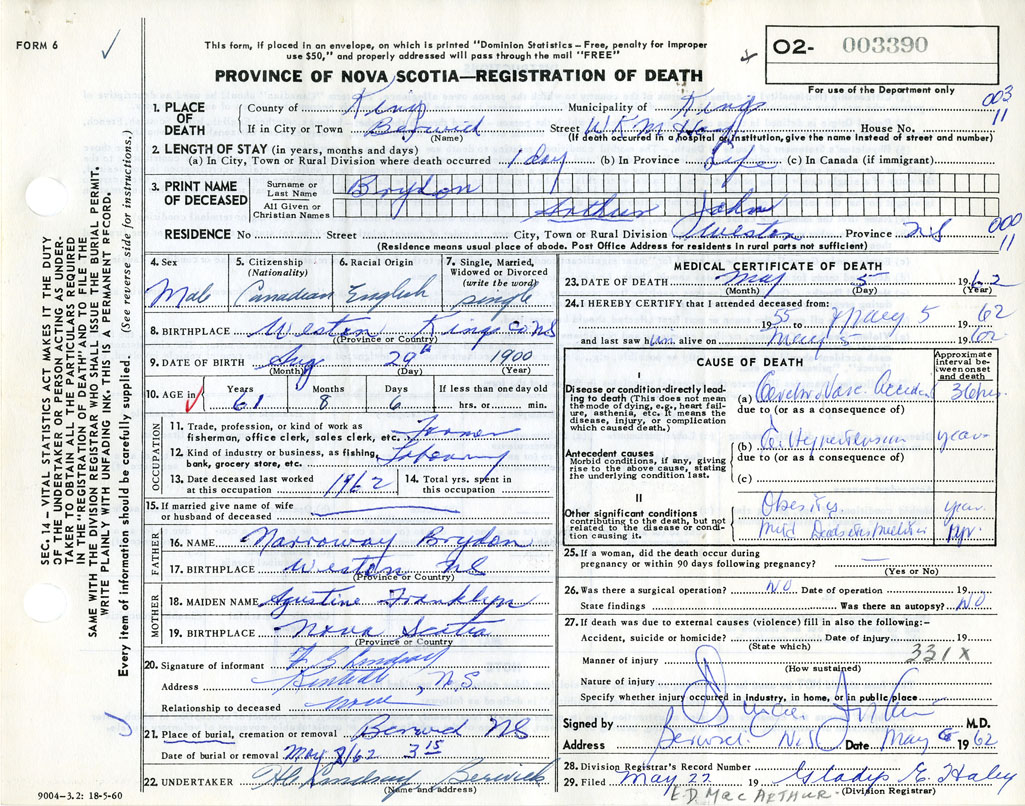 FORM 6
This form, if placed in an envelope, on which is printed "Dominion Statistics – Free, penalty for improper
use $50," and properly addressed will pass through the mail "FREE"
02- 003390
For use of the Department only
PROVINCE OF NOVA SCOTIA—REGISTRATION OF DEATH
003
11
1. PLACE OF DEATH
County of Kings Municipality of Kings
If in City or Town Berwick Street W.K.M. Hosp House No.
(If death occurred in a hospital or institution, give the name instead of street and number)
2. LENGTH OF STAY (in years, months and days)
(a) In City, Town or Rural Division where death occurred 1 day (b) In Province Life (c) In Canada (if immigrant)
3. PRINT NAME OF DECEASED
Surname or Last Name Brydon
All Given or Christian Names Arthur John
000
11
RESIDENCE No Street City, Town or Rural Division Weston Province N.S
(Residence means usual place of abode. Post Office Address for residents in rural parts not sufficient)
4. Sex Male
5. Citizenship (Nationality) Canadian
6. Racial Origin English
7. Single, Married, Widowed or Divorced (write the word) single
8. BIRTHPLACE Weston Kings Co NS
(Province or Country)
9. DATE OF BIRTH Aug 29th 1900
(Month) (Day) (Year)
10. AGE in Years 61 Months 8 Days 6 If less than one day old hrs. or min.
OCCUPATION
11. Trade, profession, or kind of work as fisherman, office clerk, sales clerk, etc. Farmer
12. Kind of industry or business, as fishing, bank, grocery store, etc.
13. Date deceased last worked at this occupation 1962
14. Total yrs. spent in this occupation
15. If married give name of wife or husband of deceased
FATHER
16. NAME Narroway Brydon
17. BIRTHPLACE Weston NS
(Province or Country)
MOTHER
18. MAIDEN NAME Agustine Franklyn
19. BIRTHPLACE Nova Scotia
(Province or Country)
20. Signature of informant Lindsay
Address , N.S
Relationship to deceased none
21. Place of burial, cremation or removal Berwick NS
Date of burial or removal May 8/62 3 15
22. UNDERTAKER Lindsay Berwick
(Name and address)
MEDICAL CERTIFICATE OF DEATH
23. DATE OF DEATH May 5 1962
(Month) (Day) (Year)
24. I HEREBY CERTIFY that I attended deceased from:
1955 to May 5 1962
and last saw him alive on May 5 1962
CAUSE OF DEATH
Approximate interval between onset and death
I
Disease or condition directly leading to death (This does not mean the mode of dying, e.g., heart failure, asthenia, etc. It means the disease, injury, or complication which caused death.)
(a) Cerebro Vasc. Accident 36 hrs.
due to (or as a consequence of)
Antecedent causes
Morbid conditions, if any, giving rise to the above cause, stating the underlying condition last.
(b) Hypertension years
due to (or as a consequence of)
(c)
II
Other significant conditions contributing to the death, but not related to the disease or condition causing it.
Obesity years
Mild Diabetes Mellitus 1 yr.
25. If a woman, did the death occur during pregnancy or within 90 days following pregnancy?
(Yes or No)
26. Was there a surgical operation? NO Date of operation 19
State findings Was there an autopsy? NO
27. If death was due to external causes (violence) fill in also the following:-
Accident, suicide or homicide? Date of injury 19
(State which)
331X
Manner of injury
(How sustained)
Nature of injury
Specify whether injury occurred in industry, in home, or in public place
Signed by M.D.
Address Berwick N.S Date May 1962
28. Division Registrar's Record Number
29. Filed May 22 19 Gladys E. Haley
(Division Registrar)
E.D. MacARTHUR
SEC. 14 – VITAL STATISTICS ACT MAKES IT THE DUTY
OF THE UNDERTAKER OR PERSON ACTING AS UNDER-
TAKER TO OBTAIN ALL THE PARTICULARS REQUIRED
IN THE "REGISTRATION OF DEATH" AND TO FILE THE
SAME WITH THE DIVISION REGISTRAR WHO SHALL ISSUE THE BURIAL PERMIT.
WRITE PLAINLY WITH UNFADING INK. THIS IS A PERMANENT RECORD.
Every item of information should be carefully supplied. (See reverse side for instructions.)
9004-3.2: 18-5-60